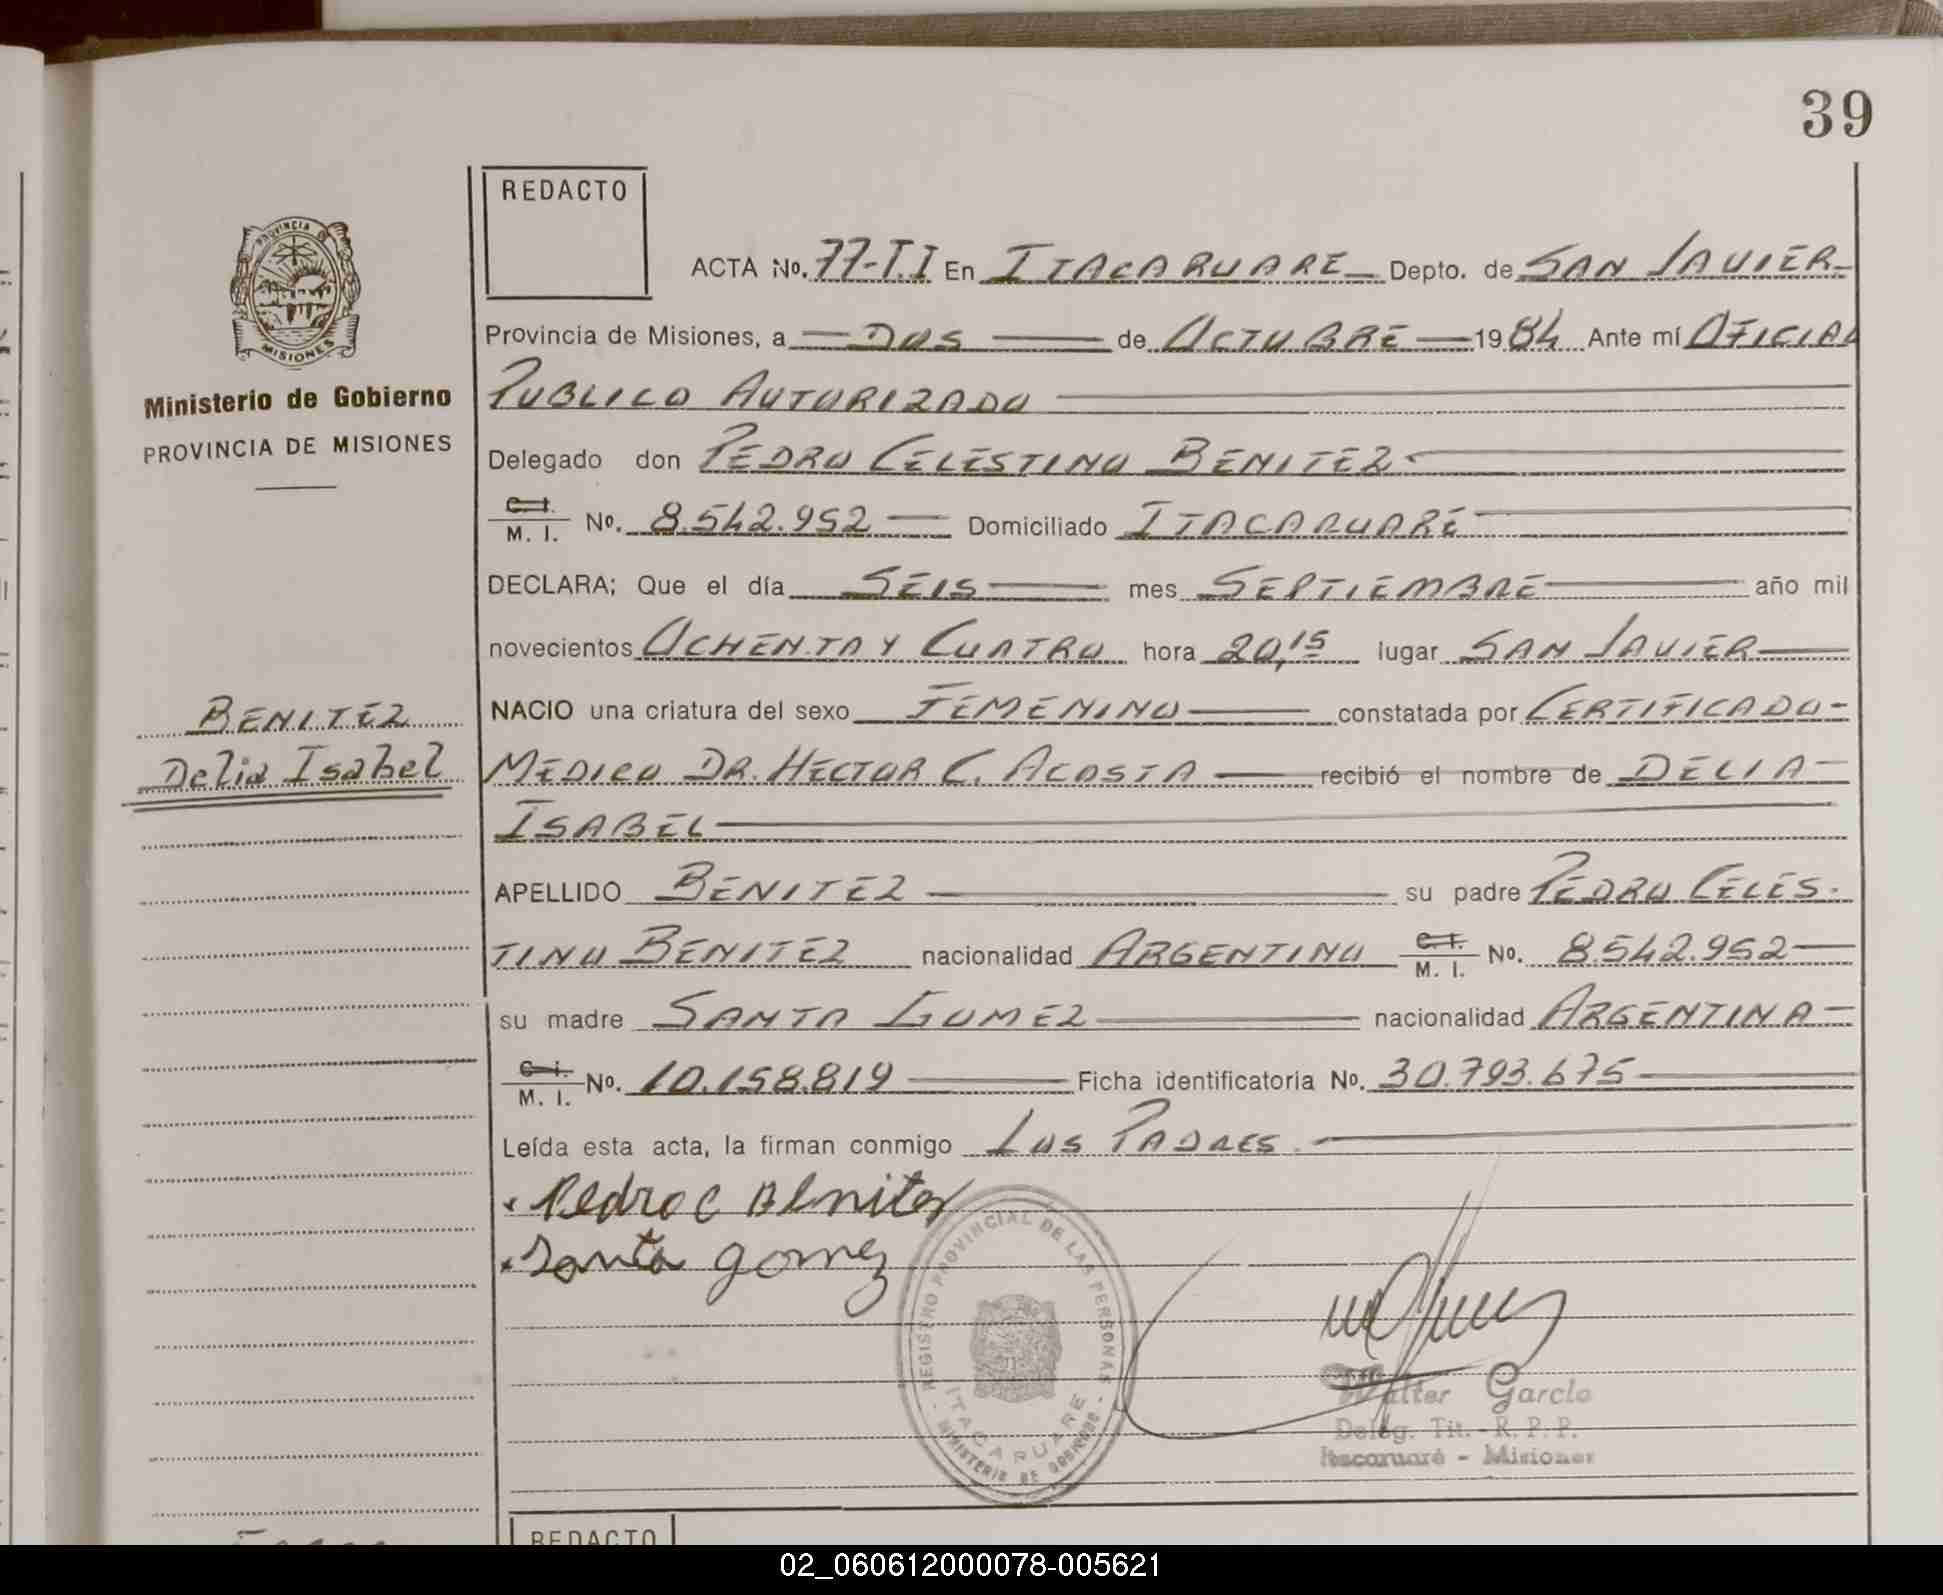 39
REDACTO
PROVINCIA DE
MISIONES
ACTA No. 77-T.I En ITACARUARE Depto. de SAN JAVIER
Provincia de Misiones, a DOS de OCTUBRE 1984 Ante mí OFICIAL
Ministerio de Gobierno
PUBLICO AUTORIZADO
PROVINCIA DE MISIONES
Delegado don PEDRO CELESTINO BENITEZ
C. I.
M. I. No. 8.542.952 Domiciliado ITACARUARÉ
DECLARA; Que el día SEIS mes SEPTIEMBRE año mil
novecientos OCHENTA Y CUATRO hora 20,15 lugar SAN JAVIER
BENITEZ
NACIO una criatura del sexo FEMENINO constatada por CERTIFICADO
Delia Isabel
MEDICO DR. HECTOR C. ACOSTA recibió el nombre de DELIA
ISABEL
APELLIDO BENITEZ su padre PEDRO CELES-
TINO BENITEZ nacionalidad ARGENTINO C. I. M. I. No. 8.542.952
su madre SANTA GOMEZ nacionalidad ARGENTINA
C. I.
M. I. No. 10.158.819 Ficha identificatoria No. 30.793.675
Leída esta acta, la firman conmigo LOS PADRES.
Pedro C Benitez
Santa gomez
REGISTRO PROVINCIAL DE LAS PERSONAS
ITACARUARE
MINISTERIO DE GOBIERNO
Walter Garcia
Deleg. Tit. - R. P. P.
Itacaruaré - Misiones
REDACTO
02_060612000078-005621